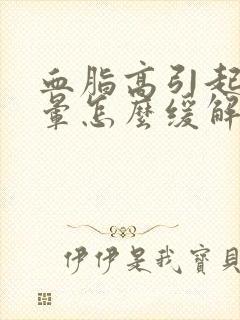 血脂高引起
暈怎麼緩解
伊伊是我寶貝